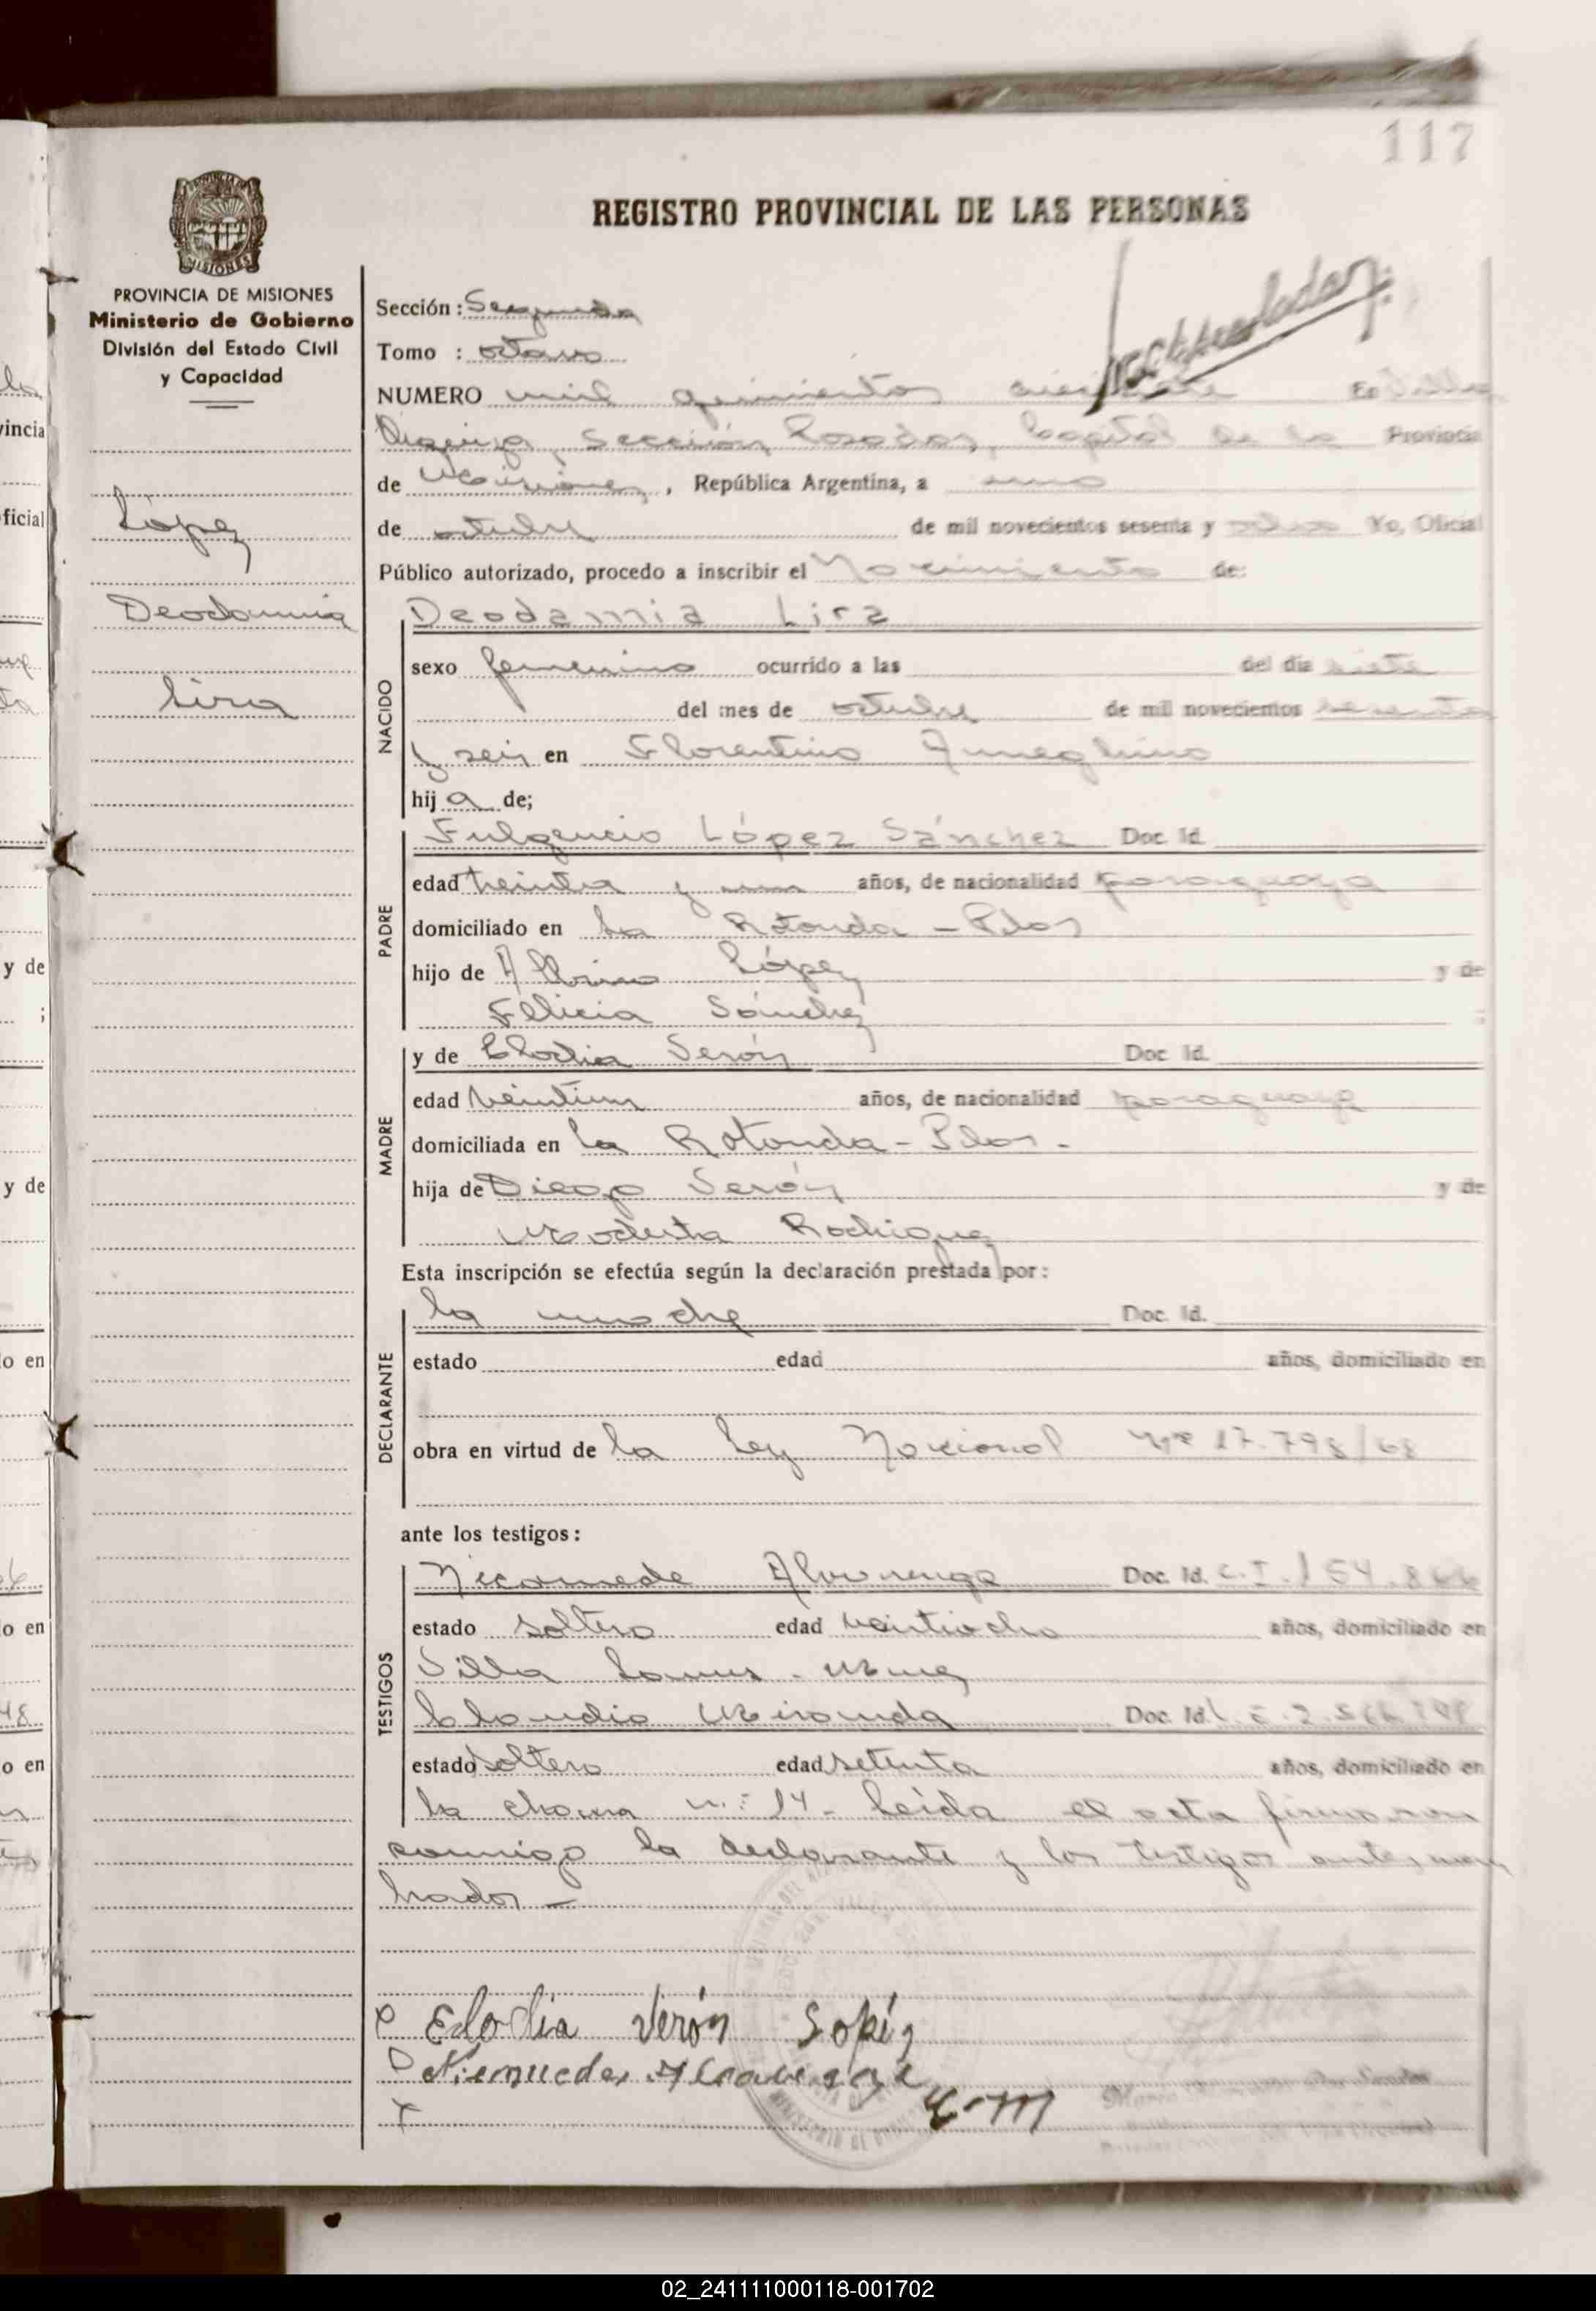 117
REGISTRO PROVINCIAL DE LAS PERSONAS
MISIONES
PROVINCIA DE MISIONES
Ministerio de Gobierno
División del Estado Civil
y Capacidad
López
Deodamia
Lira
Sección: Segunda
Tomo : octavo
NUMERO mil quinientos En Villa
Sección Posadas, Capital de la Provincia
de Misiones, República Argentina, a uno
de octubre de mil novecientos sesenta y ocho Yo, Oficial
Público autorizado, procedo a inscribir el Nacimiento de:
NACIDO
Deodamia Lira
sexo femenino ocurrido a las del día siete
del mes de octubre de mil novecientos sesenta
y seis en Florentino Ameghino
hija de;
PADRE
Fulgencio López Sánchez Doc. Id.
edad treinta y un años, de nacionalidad paraguaya
domiciliado en La Rotonda - Pdas
hijo de Albino López y de
Felicia Sánchez ;
MADRE
y de Elodia Verón Doc. Id.
edad veintiun años, de nacionalidad paraguaya
domiciliada en La Rotonda - Pdas.
hija de Diego Verón y de
Modesta Rodriguez
Esta inscripción se efectúa según la declaración prestada por:
DECLARANTE
la madre Doc. Id.
estado edad años, domiciliado en
obra en virtud de la Ley Nacional Nº 17.798/68
ante los testigos:
TESTIGOS
Nicomede Alvarenga Doc. Id. C.I. 154.866
estado soltero edad veintiocho años, domiciliado en
Villa
Claudio Miranda Doc. Id.
estado soltero edad setenta años, domiciliado en
la chacra n.º 14 - Leída el acta firmaron
conmigo la declarante y los testigos antes nom
brados -
Elodia Verón
C-M
02_241111000118-001702